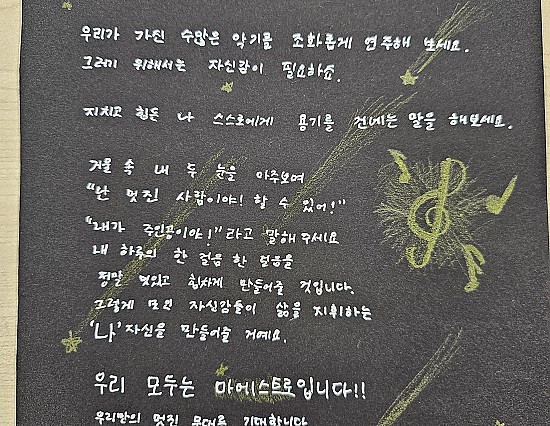 우리가 가진 수많은 악기를 조화롭게 연주해 보세요.
그러기 위해서는 자신감이 필요하죠.
지치고 힘든 나 스스로에게 용기를 건네는 말을 해보세요.
거울 속 내 두 눈을 마주보며
"난 멋진 사람이야! 할 수 있어!"
"내가 주인공이야!"라고 말해주세요
내 하루의 한 걸음 한 걸음을
정말 멋있고 힘차게 만들어줄 것입니다.
그렇게 모인 자신감들이 삶을 지휘하는
'나' 자신을 만들어줄 거예요.
우리 모두는 마에스트로입니다!!
우리만의 멋진 무대를 기대합니다